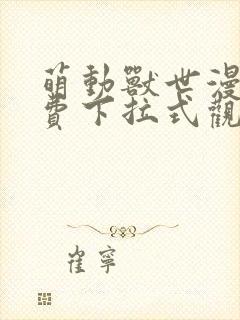 萌動獸世漫
費下拉式觀
崔寧